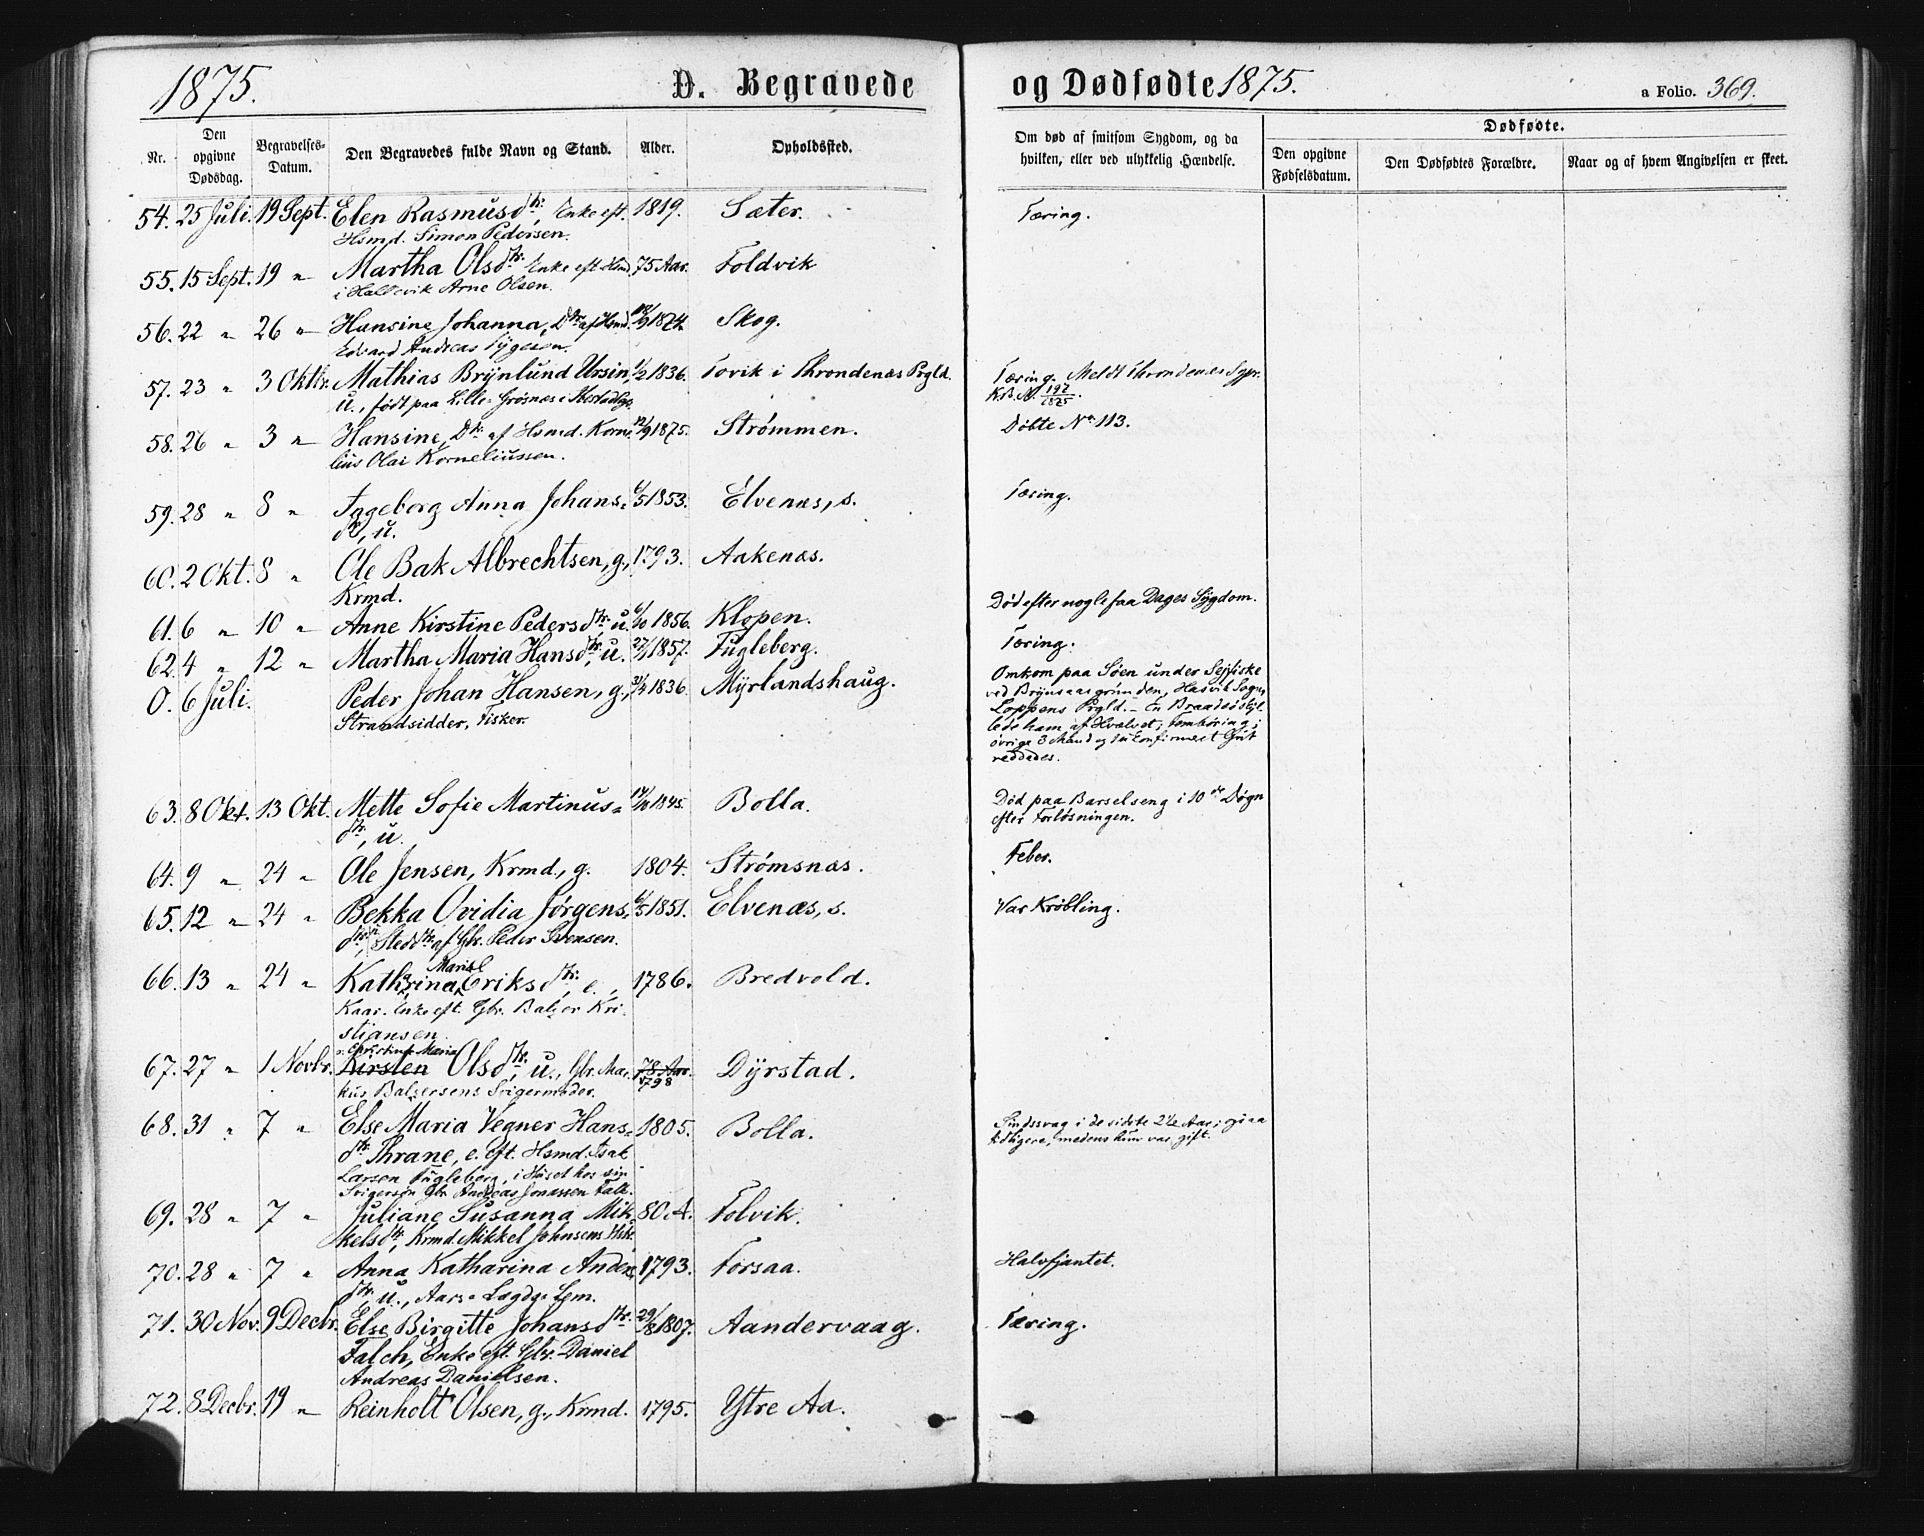 1875.
D. Begravede
og Dødfødte 1875.
a Folio. 369.
Nr.
Den opgivne Dødsdag.
Begravelses-Datum.
Den Begravedes fulde Navn og Stand.
Alder.
Opholdssted.
Om død af smitsom Sygdom, og da hvilken, eller ved ulykkelig Hændelse.
Dødfødte.
Den opgivne Fødselsdatum.
Den Dødfødtes Forældre.
Naar og af hvem Angivelsen er skeet.
54. 25 Juli. 19 Sept. Elen Rasmusdtr., Enke eft. 1819. Sæter. Tæring.
Hsmd. Simon Pedersen.
55. 15 Sept. 19 " Martha Olsdtr. Enke eft Hsmd. 75 Aar. Foldvik
i Hallevik Arne Olsen.
56. 22 " 26 " Hansine Johanna, Dtr. af Hsmd. 18/9 1874. Skog.
Edvard Andreas Tygesen.
57. 23 " 3 Oktbr. Mathias Brynlund Ursin, 1/2 1836. Tovik i Throndenæs Prgld. Tæring. Meldt Throndenæs Sgpr.
u., født paa Lille-Grøsnæs i Ibestad K.B. N. 197/1875.
58. 26 " 3 " Hansine, Dtr. af Hsmd. Korne- 12/9 1875. Strømmen. Døbte No. 113.
lius Olai Korneliussen.
59. 28 " 8 " Ingeborg Anna Johans- 6/5 1853. Elvenæs, s. Tæring.
dtr., u.
60. 2 Okt. 8 " Ole Bak Albrechtsen, g., 1793. Aakenæs.
Krmd.
61. 6 " 10 " Anne Kirstine Pedersdtr. u. 6/10 1856. Klopen. Død efter nogle faa Dages Sygdom.
62. 4 " 12 " Martha Maria Hansdtr., u. 27/1 1857. Fugleberg. Tæring.
0. 6 Juli. Peder Johan Hansen, g., 31/4 1836. Myrlandshaug. Omkom paa Søen under Sejfiske
Strandsidder, Fisker. ved Brynsaasgrunden, Hasvik Sogn,
Loppens Prgld. – En Braadsø skyl-
lede ham af Hvælvet; Fembøring;
øvrige 3 Mand og 1 ukonfirmeret Gut
reddedes.
63. 8 Okt. 13 Okt. Mette Sofie Martinus- 14/10 1845. Bolla. Død paa Barselseng i 10de Døgn
dtr., u. efter Forløsningen.
64. 9 " 24 " Ole Jensen, Krmd., g. 1804. Strømsnæs. Feber.
65. 12 " 24 " Bekka Ovidia Jørgens- 6/5 1851. Elvenæs, s. Var Krøbling.
dtr., Steddtr. af Gbr. Peder Svensen.
66. 13 " 24 " Kathrina Marie Eriksdtr., e., 1786. Bredvold.
Kaar-Enke eft. Gbr. Balzer Kri-
stiansen.
67. 27 " 1 Novbr. Kirsten Christine Maria Olsdtr., u., Gbr. Mar- 78 Aar. 1798 Dyrstad.
kus Balsersens Svigermoder.
68. 31 " 7 " Else Maria Vegner Hans- 1805. Bolla. Sindssvag i de sidste 2½ Aar; ogsaa
dtr. Thrane, e. eft. Hsmd. Isak tidligere, medens hun var gift.
Larsen Fugleberg, i Huset hos sin
Svigersøn Gbr. Andreas Jonassen Falk.
69. 28 " 7 " Juliane Susanna Mik- 80 A. Tolvik.
kelsdtr., Krmd. Mikkel Johnsens Hstr.
70. 28 " 7 " Anna Katharina Anders- 1793. Forsaa. Halvfjantet.
dtr., u., Aars- Lægds Lem.
71. 30 Nov. 9 Decbr. Else Birgitte Johansdtr. 29/8 1807. Aandervaag. Tæring.
Falch, Enke eft. Gbr. Daniel
Andreas Danielsen.
72. 8 Decbr. 19 " Reinholt Olsen, g., Krmd. 1795. Ytre Aa.